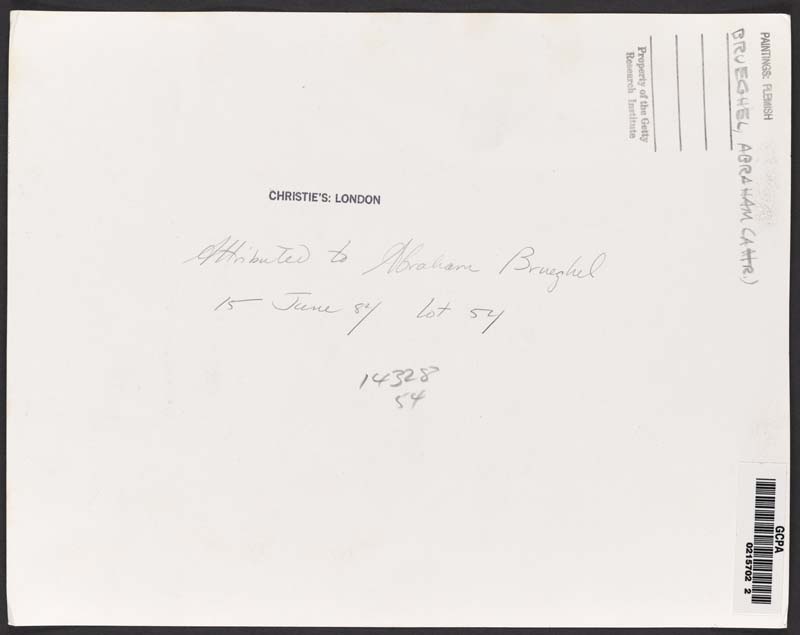 PAINTINGS: FLEMISH
BRUEGHEL, ABRAHAM (ATTR.)
Property of the Getty
Research Institute
CHRISTIE'S: LONDON
Attributed to Abraham Brueghel
15 June 84 Lot 54
14328
54
GCPA
0215702 2